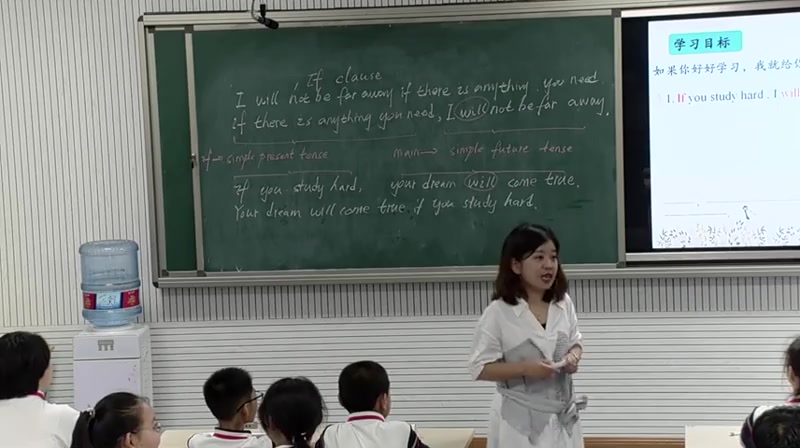 If clause
I will not be far away if there is anything you need.
if there is anything you need, I will not be far away.
if→simple present tense
main→ simple future tense
If you study hard, your dream will come true.
Your dream will come true if you study hard.
学习目标
如果你好好学习，我就给你
1. If you study hard , I will